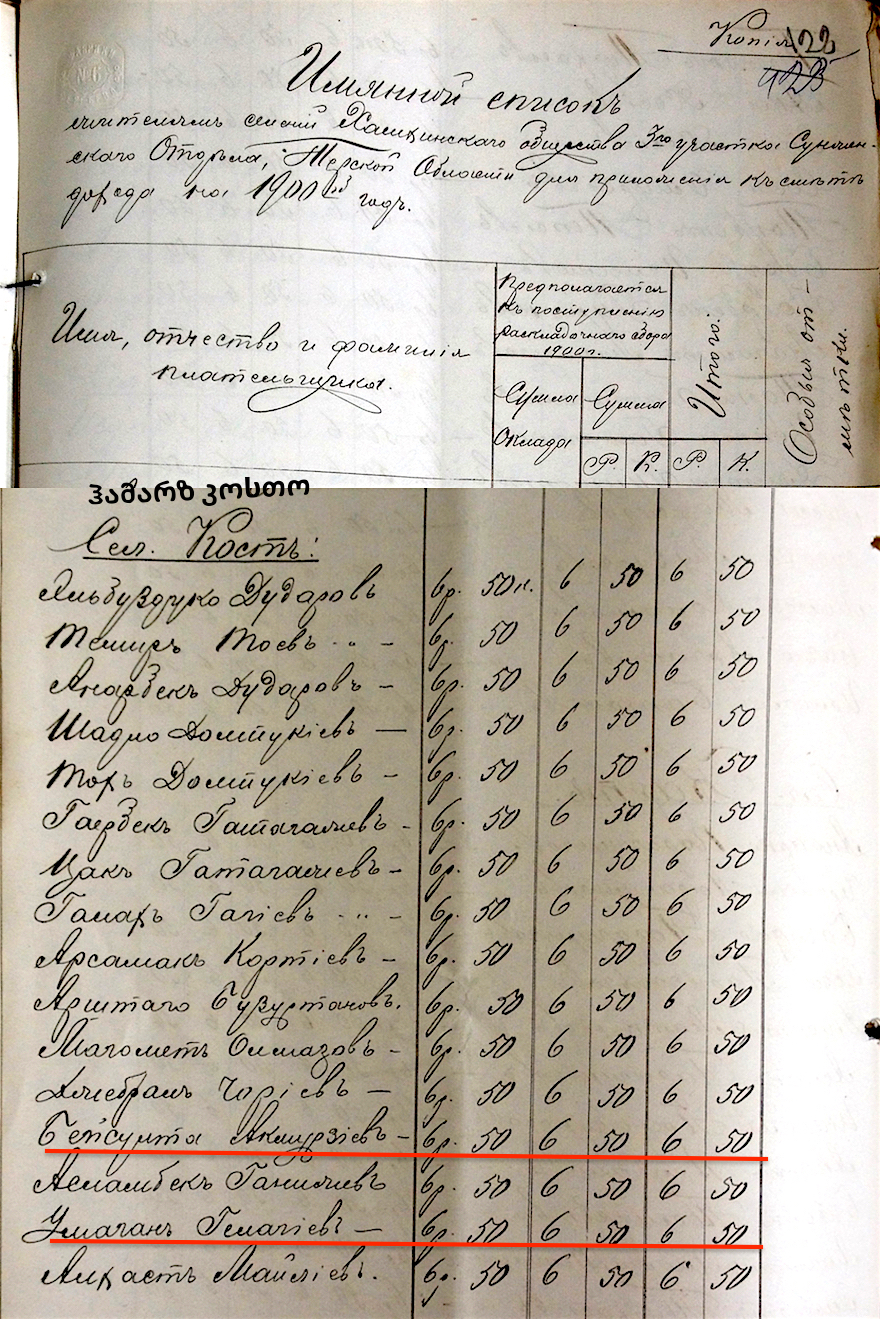 Копія 122
Имянной списокъ
жителямъ селеній Хамхинскаго общества 3го участка Сунжен-
скаго Отдѣла, Терской Области для приложенія къ смѣтѣ
дохода на 1900й годъ.
Имя, отчество и фамилія
плательщика.
Предполагается
къ поступленію
раскладочнаго сбора
1900 г.
Сумма
Оклада
Сумма
Р. К.
Итого:
Р. К.
Особыя от-
мѣтки.
ჰამარზ კოსთო
Сел. Костъ:
Альбуздуко Дударовъ 6р. 50к. 6 50 6 50
Темиръ Тоевъ 6р. 50 6 50 6 50
Анарбекъ Дударовъ – 6р. 50 6 50 6 50
Шадио Долтукіевъ — 6р. 50 6 50 6 50
Тохъ Долтукіевъ – 6р. 50 6 50 6 50
Гаербекъ Гатагажевъ - 6р. 50 6 50 6 50
Цакъ Гатагажевъ – 6р. 50 6 50 6 50
Гамахъ Гагіевъ – 6р. 50 6 50 6 50
Арсамакъ Кортіевъ – 6р. 50 6 50 6 50
Арштаго Бузуртановъ. 6р. 50 6 50 6 50
Магометъ Олмазовъ – 6р. 50 6 50 6 50
Джебраил Чоріевъ — 6р. 50 6 50 6 50
Бейсулта Акмурзіевъ – 6р. 50 6 50 6 50
Асламбекъ Ганижевъ 6р. 50 6 50 6 50
Умаханъ Гемагіевъ — 6р. 50 6 50 6 50
Алхастъ Майсіевъ. 6р. 50 6 50 6 50